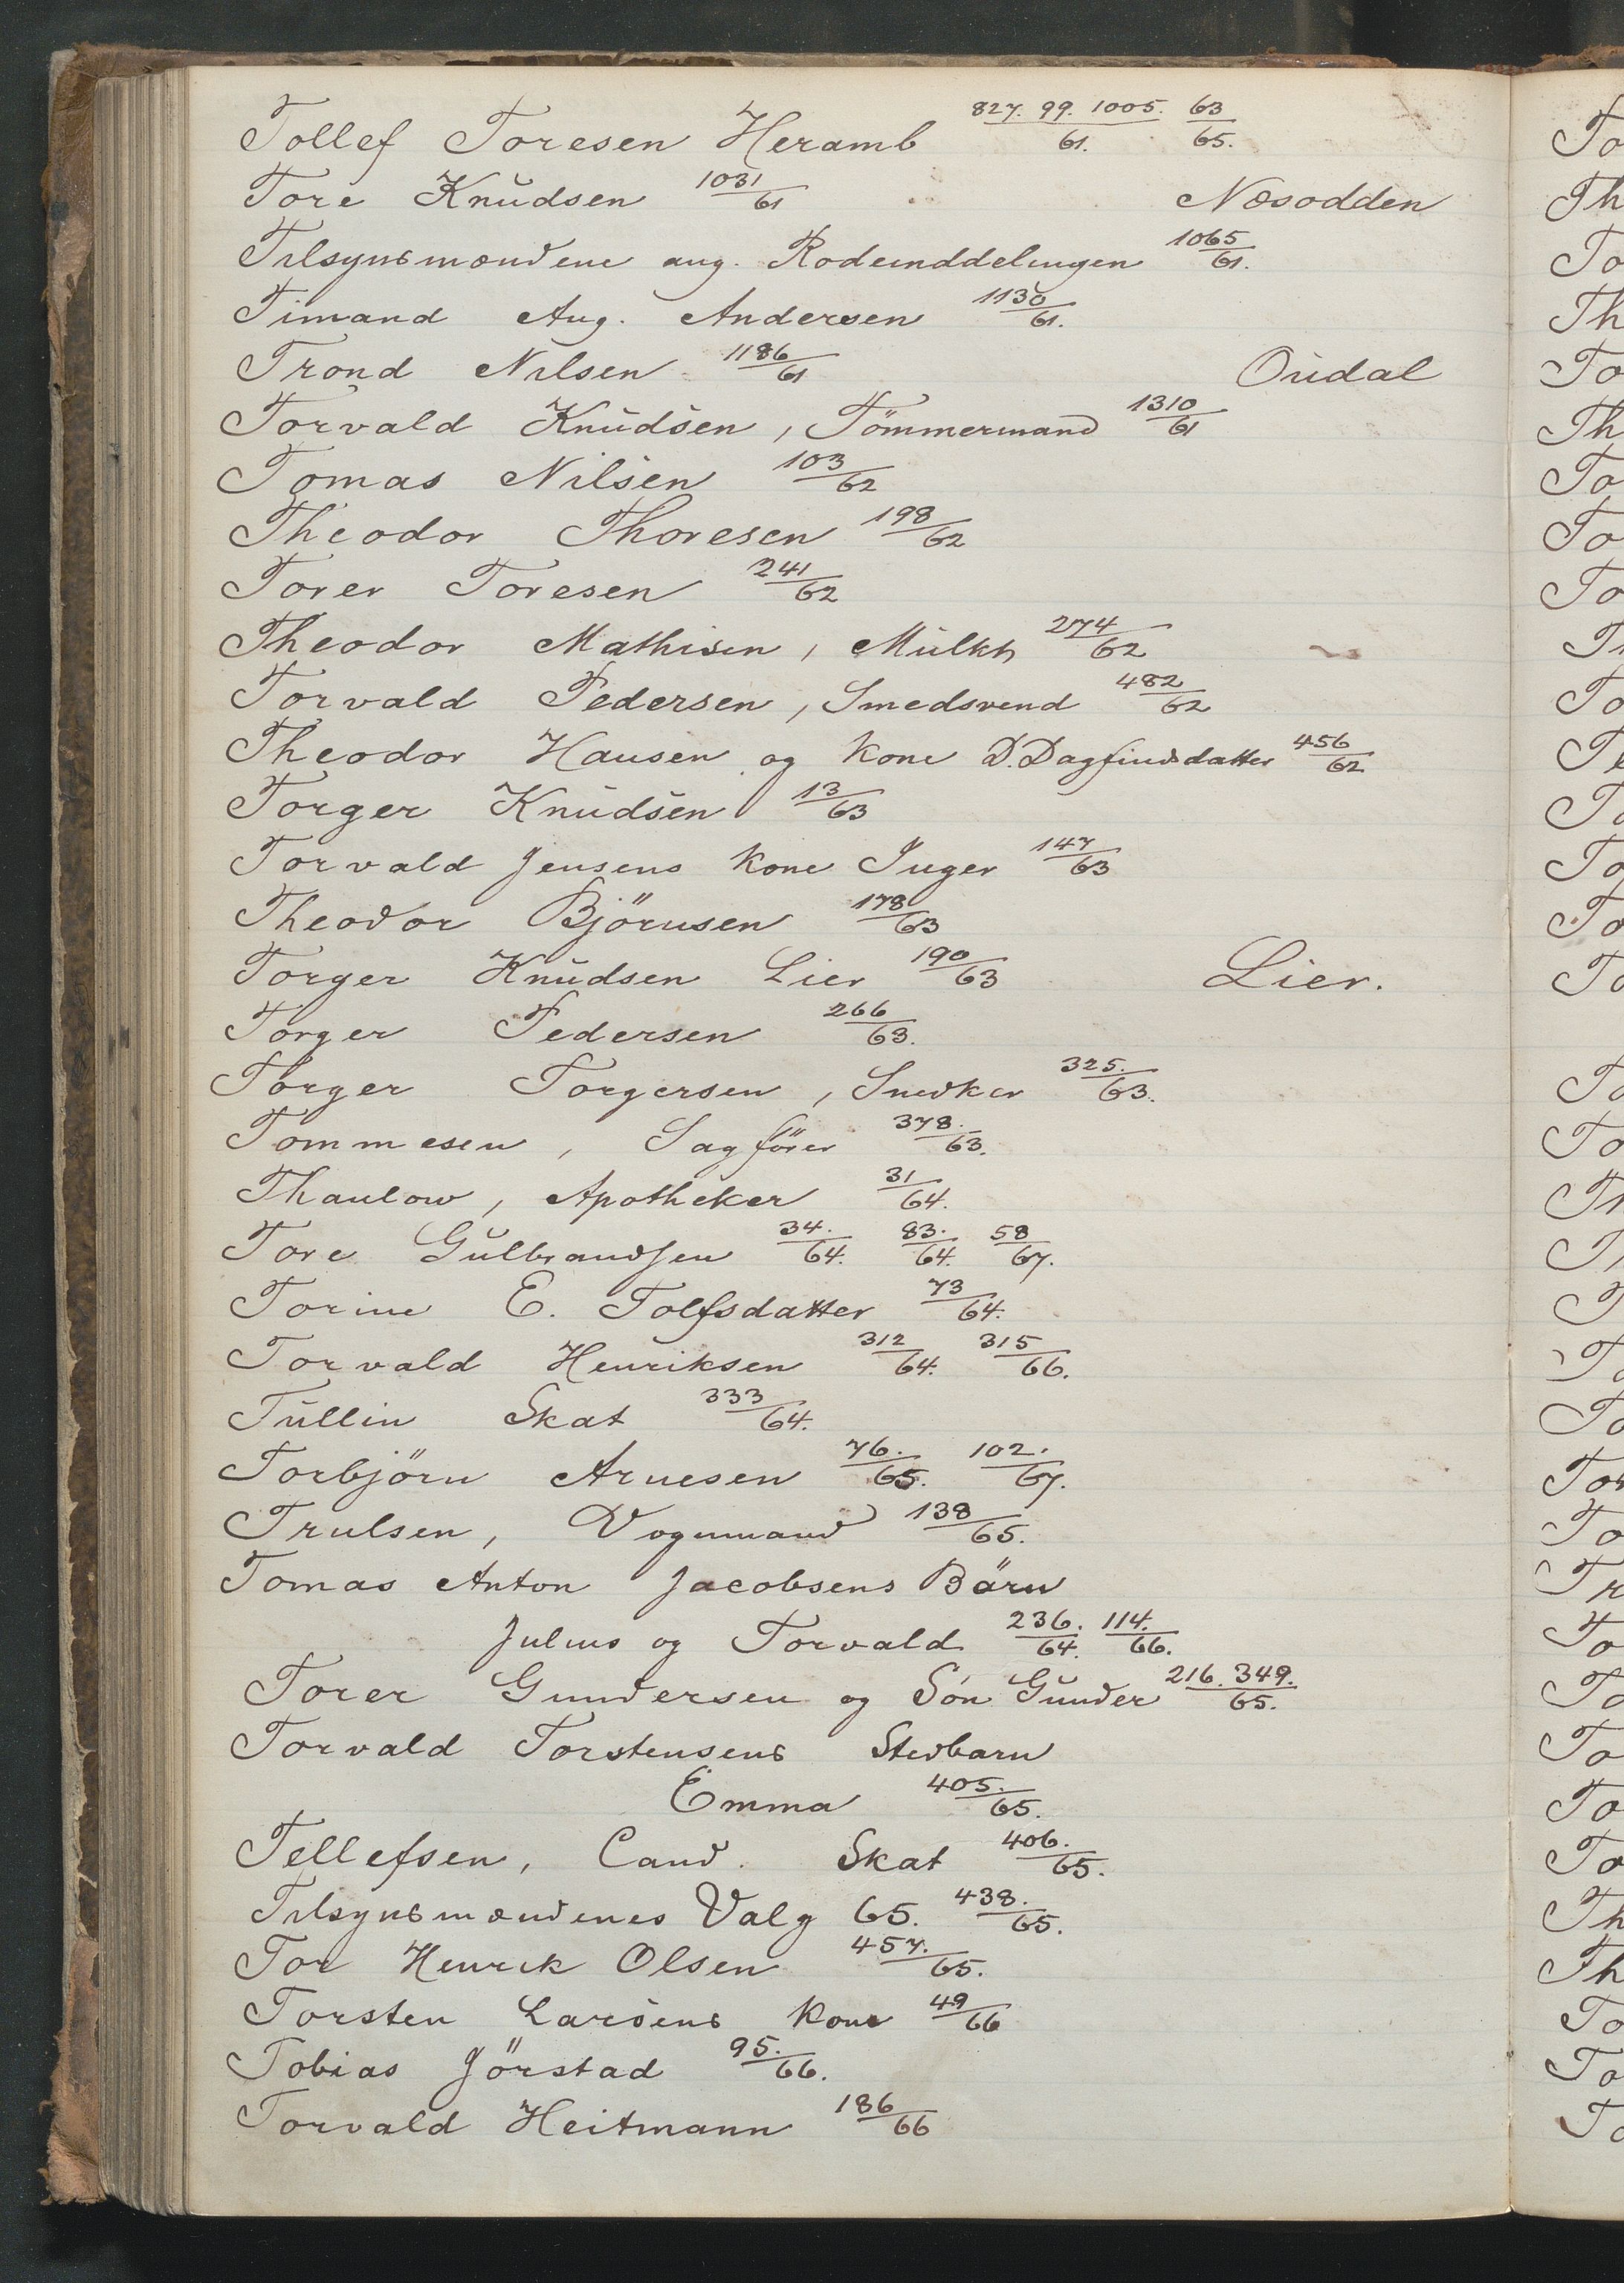 Tollef Toresen Heramb 827. 99. 1005./61. 63/65.
Tore Knudsen 1031/61 Næsodden
Tilsynsmændene ang. Rodeinddelingen 1065/61.
Timand Aug. Andersen 1130/61.
Trond Nilsen 1186/61 Ourdal
Torvald Knudsen, Tömmermand 1310/61
Tomas Nilsen 103/62
Theodor Thoresen 198/62
Torer Toresen 241/62
Theodor Mathisen, Mulkt 274/62
Torvald Pedersen, Smedsvend 482/62
Theodor Hansen og Kone D. Dagfindsdatter 456/62
Torger Knudsen 13/63
Torvald Jensens Kone Inger 147/63
Theodor Björnsen 178/63
Torger Knudsen Lier 190/63 Lier.
Torger Pedersen 266/63.
Torger Torgersen, Snedker 325./63.
Tommesen, Sagförer 378./63.
Thaulow, Apotheker 31/64.
Tore Gulbrandsen 34./64. 83./64. 58/67.
Torine E. Tolfsdatter 73/64.
Torvald Henriksen 312/64. 315/66.
Tullin Skat 333/64.
Torbjörn Arnesen 76./65. 102./67.
Trulsen, Vognmand 138/65.
Tomas Anton Jacobsens Börn
Julius og Torvald 236./64. 114./66.
Torer Gundersen og Sön Gunder 216. 349./65.
Torvald Torstensens Stedbarn
Emma 405./65.
Tellefsen, Cand. Skat 406./65.
Tilsynsmændenes Valg 65. 438./65.
Tor Henrik Olsen 457./65.
Torsten Larsens Kone 49/66
Tobias Jörstad 95./66.
Torvald Heitmann 186/66